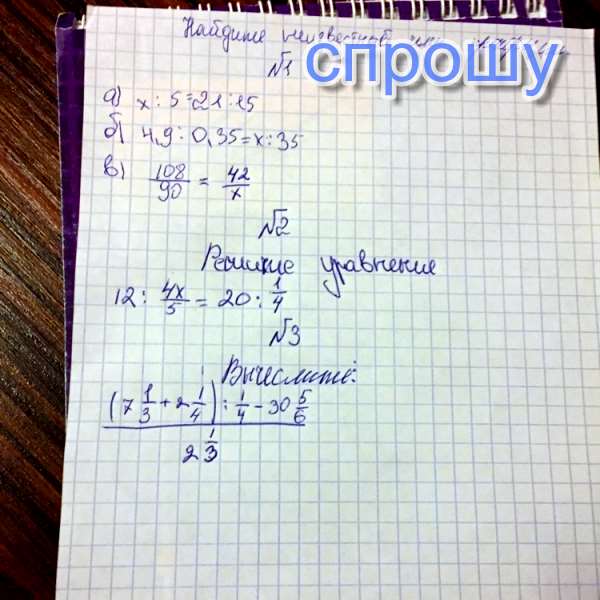 Найдите неизвестный
спрошу
№1
а) x : 5 = 21 : 15
б) 4,9 : 0,35 = x : 35
в) 108/90 = 42/x
№2
Решите уравнение
12 : 4x/5 = 20 : 1/4
№3
Вычеслите:
(7 1/3 + 2 1/4) : 1/4 - 30 5/6
2 1/3